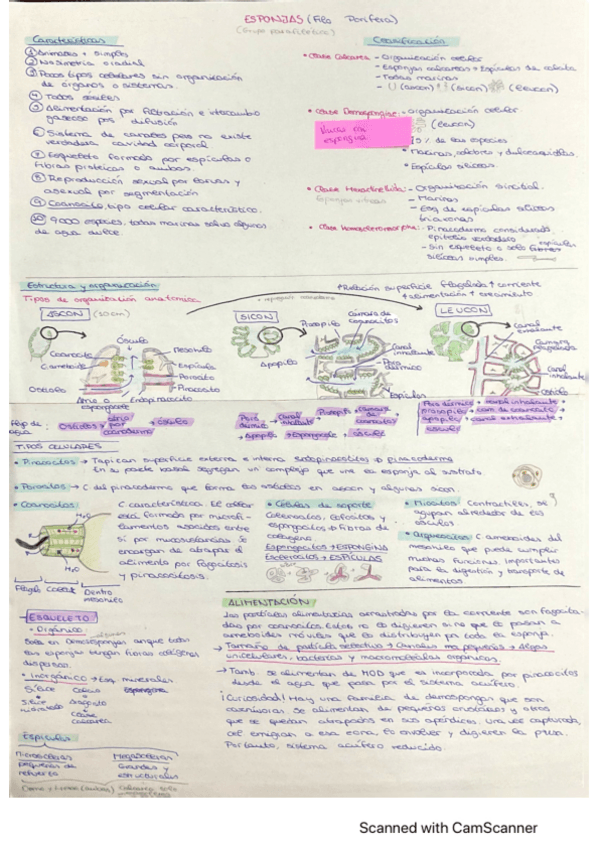 ESPONJAS (Filo Porífera)
(Grupo parafilético)
Características
① Animales + simples
② No simetría o radial
③ Pocos tipos celulares sin organización
de órganos o sistemas.
④ Todos sésiles
⑤ Alimentación por filtración e intercambio
gaseoso por difusión
⑥ Sistema de canales pero no existe
verdadera cavidad corporal
⑦ Esqueleto formado por espículas o
fibras proteicas o ambos.
⑧ Reproducción sexual por larvas y
asexual por segmentación
⑨ Coanocito, tipo celular característico.
⑩ 9000 especies, todas marinas salvo algunas
de agua dulce.
Clasificación
• Clase Calcárea - Organización celular
- Esponjas calcáreas → Espículas de calcita
- Todas marinas
- (ascon) (sicon) (leucon)
• Clase Demospongiae - Organización celular
(leucon)
5% de las especies
• Marinas, salobres y dulceacuícolas
• Espículas silíceas.
• Clase Hexactinellida - Organización sincitial.
Esponjas vítreas - Marinas
- Esq de espículas silíceas
triaxonas
• Clase Homoscleromorpha - Pinacodermo considerado
epitelio verdadero
- Sin esqueleto o solo espículas
silíceas simples.
Estructura y organización
Tipos de organización anatómica
↑ Relación superficie flagelada ↑ corriente
↑ alimentación ↑ crecimiento
ASCON (10cm)
SICON
LEUCON
Ósculo
Coanocito
Mesohilo
Espícula
Porocito
Pinacocito
Ostíolo
Atrio o
espongocele
Endopinacocito
Prosopilo
Cámara de
coanocitos
Canal
inhalante
Poro
dérmico
Apopilo
Espículas
Canal
exhalante
Cámara
flagelada
Canal
inhalante
Ostíolo
Flujo de
agua
Ostíolos → → ósculo
Poro
dérmico → Canal
inhalante → Prosopilo → Cámara
de
coanocitos
→ Apopilo → Espongocele → ósculo
Poro dérmico → canal inhalante →
prosopilo → cam. de coanocito →
apopilo → canal exhalante →
ósculo
TIPOS CELULARES
• Pinacocitos → Tapizan superficie externa e interna
En su parte basal segregan un complejo que une la esponja al sustrato.
• Porocitos → C del pinacodermo que forma los ostíolos en ascon y algunas sicon.
• Coanocitos:
H₂O
H₂O
Flagelo Collar Dentro
mesohilo
C característica. El collar
está formado por microfi-
lamentos unidos entre
sí por microvellosidades. Se
encargan de atrapar el
alimento por fagocitosis
y pinocitosis.
• Células de soporte
Colenocitos, lofocitos y
espongocitos → Fibras de
colágeno.
Espongocitos → ESPONGINA
Esclerocitos → ESPÍCULAS
• Miocitos: Contráctiles, se
agrupan alrededor de los
ósculos
• Arqueocitos: C ameboides del
mesohilo que puede cumplir
muchas funciones. Importantes
para la digestión y transporte de
alimentos.
ESQUELETO
• Orgánico:
Solo en Demospongias aunque todas
las esponjas tengan fibras colágenas
dispersas.
• Inorgánico → Esq. mineral
Sílice
Calcio
Aragonito
Calcita
ESPÍCULAS
Microscleras
pequeñas de
refuerzo
Megascleras
Grandes y
estructurales
ALIMENTACIÓN
Las partículas alimentarias arrastradas por la corriente son fagocita-
das por coanocitos. Estos no la digieren sino que lo pasan a
ameboides móviles que lo distribuyen por toda la esponja.
→ Tamaño de partícula selectivo → Canales más pequeños → Algas
unicelulares, bacterias y macromoléculas orgánicas.
→ Tamb. se alimentan de MOD que es incorporada por pinacocitos
desde el agua que pasa por el sistema acuífero.
¡Curiosidad! Hay una familia de demospongias que son
carnívoras. Se alimentan de pequeños crustáceos y otros
que se quedan atrapados en sus apéndices. Una vez capturada,
cel emigran a esa zona, lo envuelven y digieren la presa.
Por tanto, sistema acuífero reducido.
Scanned with CamScanner